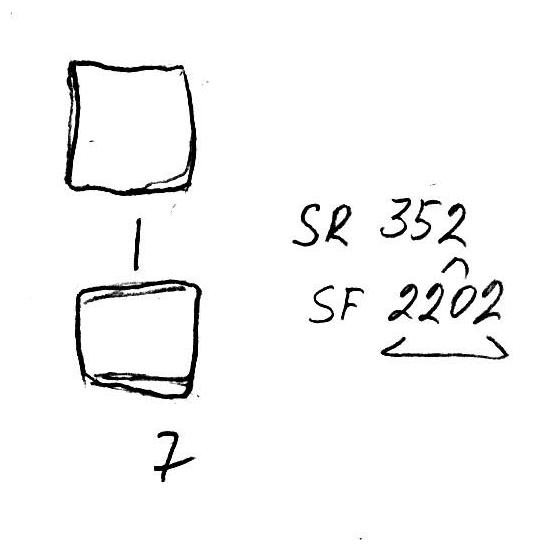 1
SR 352
SF 2202
7